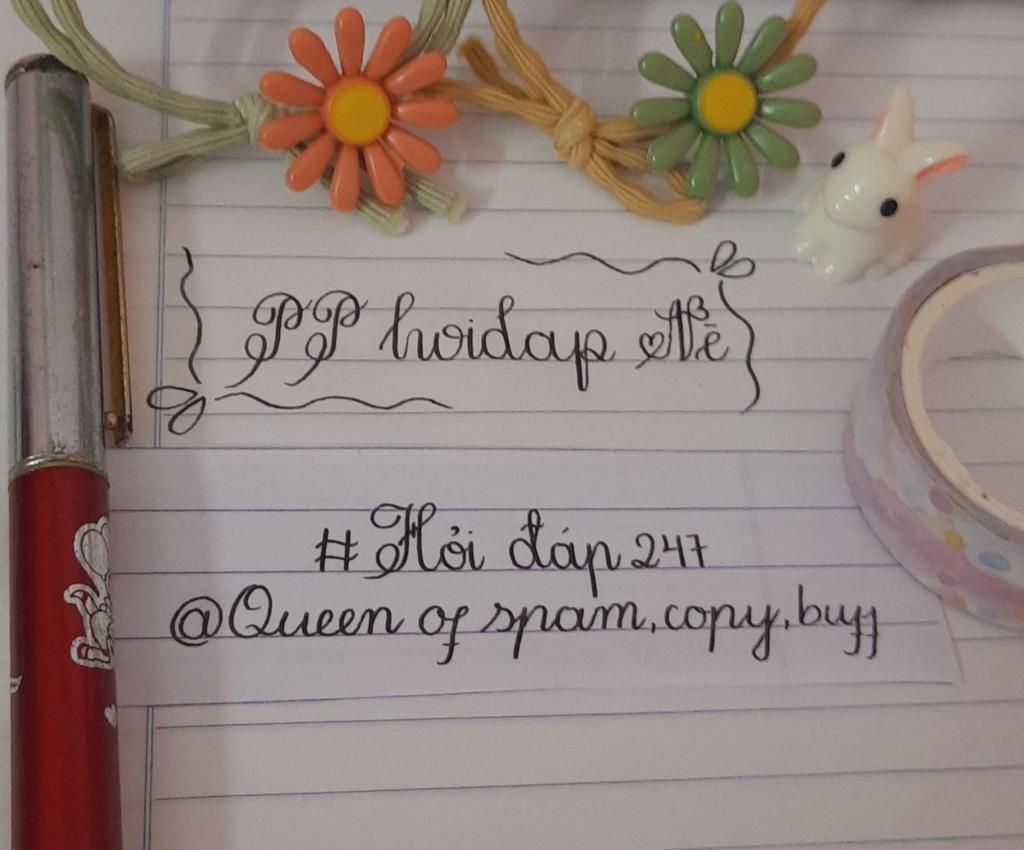 PP hoidap
#Hỏi đáp 247
@Queen of spam, copy, buff